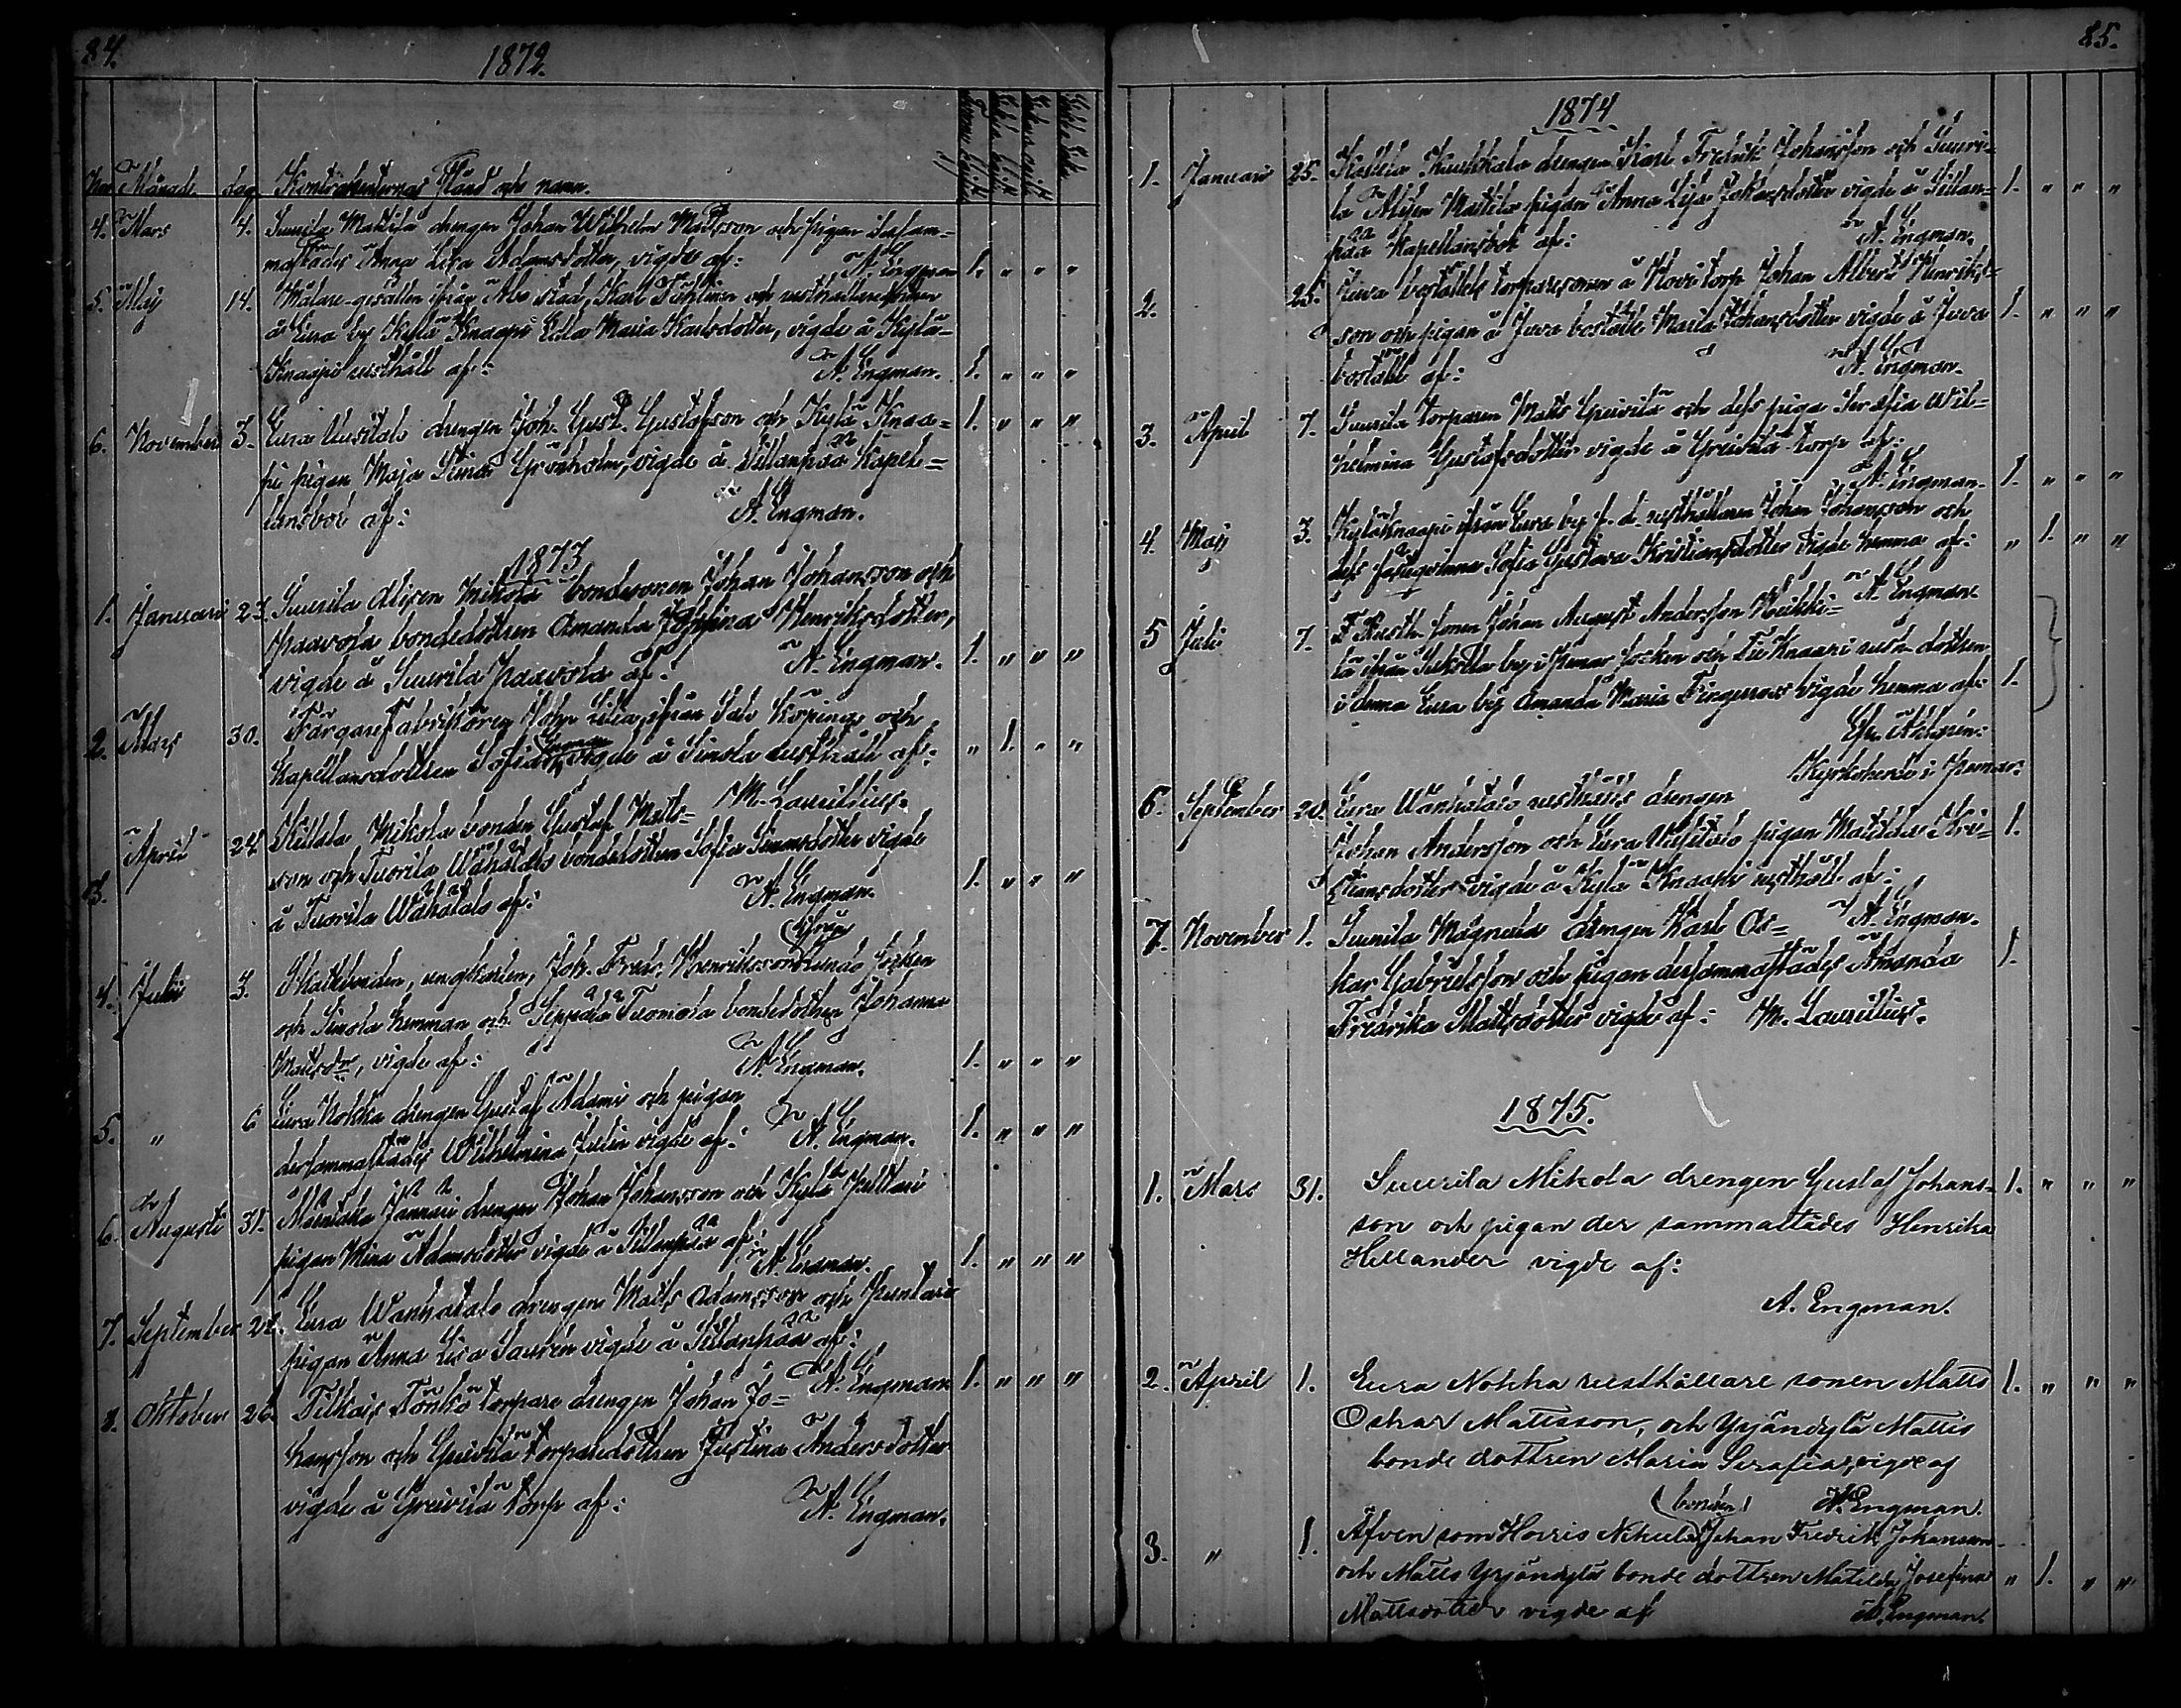 84.
1872.
N:o Månad. dag. Kontrahenternas Stånd och namn.
4. Mars 4. Suurila Mattila drengen Johan Wilhelm Mattsson och pigan dersam-
mastädes Anna Lisa Adamsdotter, vigde af: A. Engman 1. " " "
5. Maj 14. Målare-gesällen ifrån Åbo stad, Karl och rusthållaredottren
å Eura by Kylä Knaapi Eida Maria Karlsdotter, vigde å Kylä-
Knaapi rusthåll af: A. Engman. 1. " " "
6. November 3. Eura Uusitalo drengen Joh. Gust. Gustafsson och Kylä Knaa- 1. " " "
pi pigan Maja Stina Grönholm, vigde å Sillanpää Kapel-
lansbol af: A. Engman.
1873
1. Januari 23. Suurila Alisen Mikola bondesonen Johan Johansson och
Paavola bondedottren Amanda Josefina Henriksdotter,
vigde å Suurila Paavola af: A. Engman. 1. " " "
2. Mars 30. Färgarefabrikören John Lilja, ifrån Salo Köping och
Kapellansdottren Sofia Engman vigde å Simola rusthåll af: " 1. " "
M. Laurellius.
3. April 24. Mikola bonden Gustaf Matts-
son och Tuorila Wähätalo bondedottren Sofia Simonsdotter vigde
å Tuorila Wähätalo af: A. Engman. 1. " " "
4. Julii 3. ungkarlen, Joh. Fredr. Henriksson socken
och Simola hemman och Seppälä Tuomola bondedottren Johanna
Matsdr, vigde af: A. Engman. 1. " " "
5. " 6 Eura Nokka drengen Gustaf Adami och pigan
dersammastädes Wilhelmina Julin vigde af: A. Engman. 1. " " "
6. Augusti 31. Jaanari drengen Johan Johansson och Kylä Julttari
pigan Mina Adamsdotter vigde å Sillanpää af: A. Engman. 1. " " "
7. September 28. Eura Wanhatalo drengen Matts Adamsson och Juntari
pigan Anna Lisa Saurén vigde å Sillanpää af:
A. Engman 1. " " "
8. Oktober 26. torpare drengen Johan Jo-
hansson och Greivilä torparedottren Justina Andersdotter
vigde å Greivilä torp af: A. Engman.
85.
1874
1. Januari 25. drengen Karl Fredrik Johansson och Suuri-
la Alisen Mattila pigan Anna Lisa Johansdotter vigde å Sillan- 1. " " "
pää Kapellansbol af: A. Engman.
2. 25. Juva boställets torparesonen å Kovi torp Johan Albert Henriks-
son och pigan å Juva boställe Maria Johansdotter vigde å Juva 1. " " "
boställe af: A. Engman.
3. April 7. Suurila torparen Matts Greivilä och dess piga Serafia Wil-
helmina Gustafsdotter vigde å Greivilä torp af:
A. Engman. 1. " " "
4. Maj 3. Kyläknaapi ifrån Eura by f. d. rusthållaren Johan Johansson och
dess Sofia Gustava Kristiansdotter vigde hemma af: " 1. " "
A. Engman.
5 Juli 7. Rusth. sonen Johan August Andersson Heikki-
lä ifrån by i Pemar socken och Knaapi rusth. dottren
i denna Eura by Amanda Maria Fingerroos vigde hemma af: 1.
Kyrkoherde i Pemar.
6. September 20. Eura Wanhatalo rusthålls drengen
Johan Andersson och Eura Uusitalo pigan Matilda Kri- 1.
stiansdotter vigde å Kylä Knaapi rusthåll af:
A. Engman.
7. November 1. Suurila Magnula drengen Karl Os-
kar Gabrielsson och pigan dersammastädes Amanda 1.
Fredrika Mattsdotter vigde af: M. Laurellius.
1875.
1. Mars 31. Suurila Mikola drengen Gustaf Johans- 1. " " "
son och pigan der sammastädes Henrika
Hellander vigde af:
A. Engman.
2. April 1. Eura Nokka rusthållare sonen Matts 1. " " "
Oskar Mattsson, och Yrjänkylä Mattis
bonde dottren Maria Serafia, vigde af
(bonden) A. Engman.
3. " 1. Äfven som Horris Nikula Johan Fredrik Johansson
och Matts Yrjänkylä bonde dottren Matilda Josefina " 1. " "
Mattsdotter vigde af A. Engman.